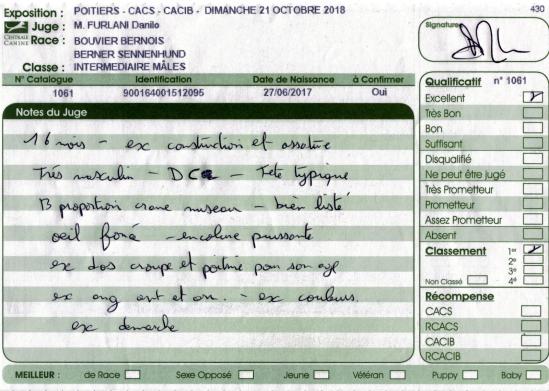 Exposition : POITIERS - CACS - CACIB - DIMANCHE 21 OCTOBRE 2018
430
CENTRALE CANINE
Juge : M. FURLANI Danilo
Signature
Race : BOUVIER BERNOIS
BERNER SENNENHUND
Classe : INTERMEDIAIRE MÂLES
N° Catalogue Identification Date de Naissance à Confirmer
1061 900164001512095 27/06/2017 Oui
Notes du Juge
16 mois - ex construction et ossature
Très masculin - DC - Tete typique
B proportion crane museau - bien listé
oeil foncé - encolure puissante
ex dos croupe et poitrine pour son age
ex ang ant et - ex couleurs.
ex demarche
Qualificatif n° 1061
Excellent
Très Bon
Bon
Suffisant
Disqualifié
Ne peut être jugé
Très Prometteur
Prometteur
Assez Prometteur
Absent
Classement 1er
2e
3e
Non Classé 4e
Récompense
CACS
RCACS
CACIB
RCACIB
MEILLEUR : de Race Sexe Opposé Jeune Vétéran Puppy Baby